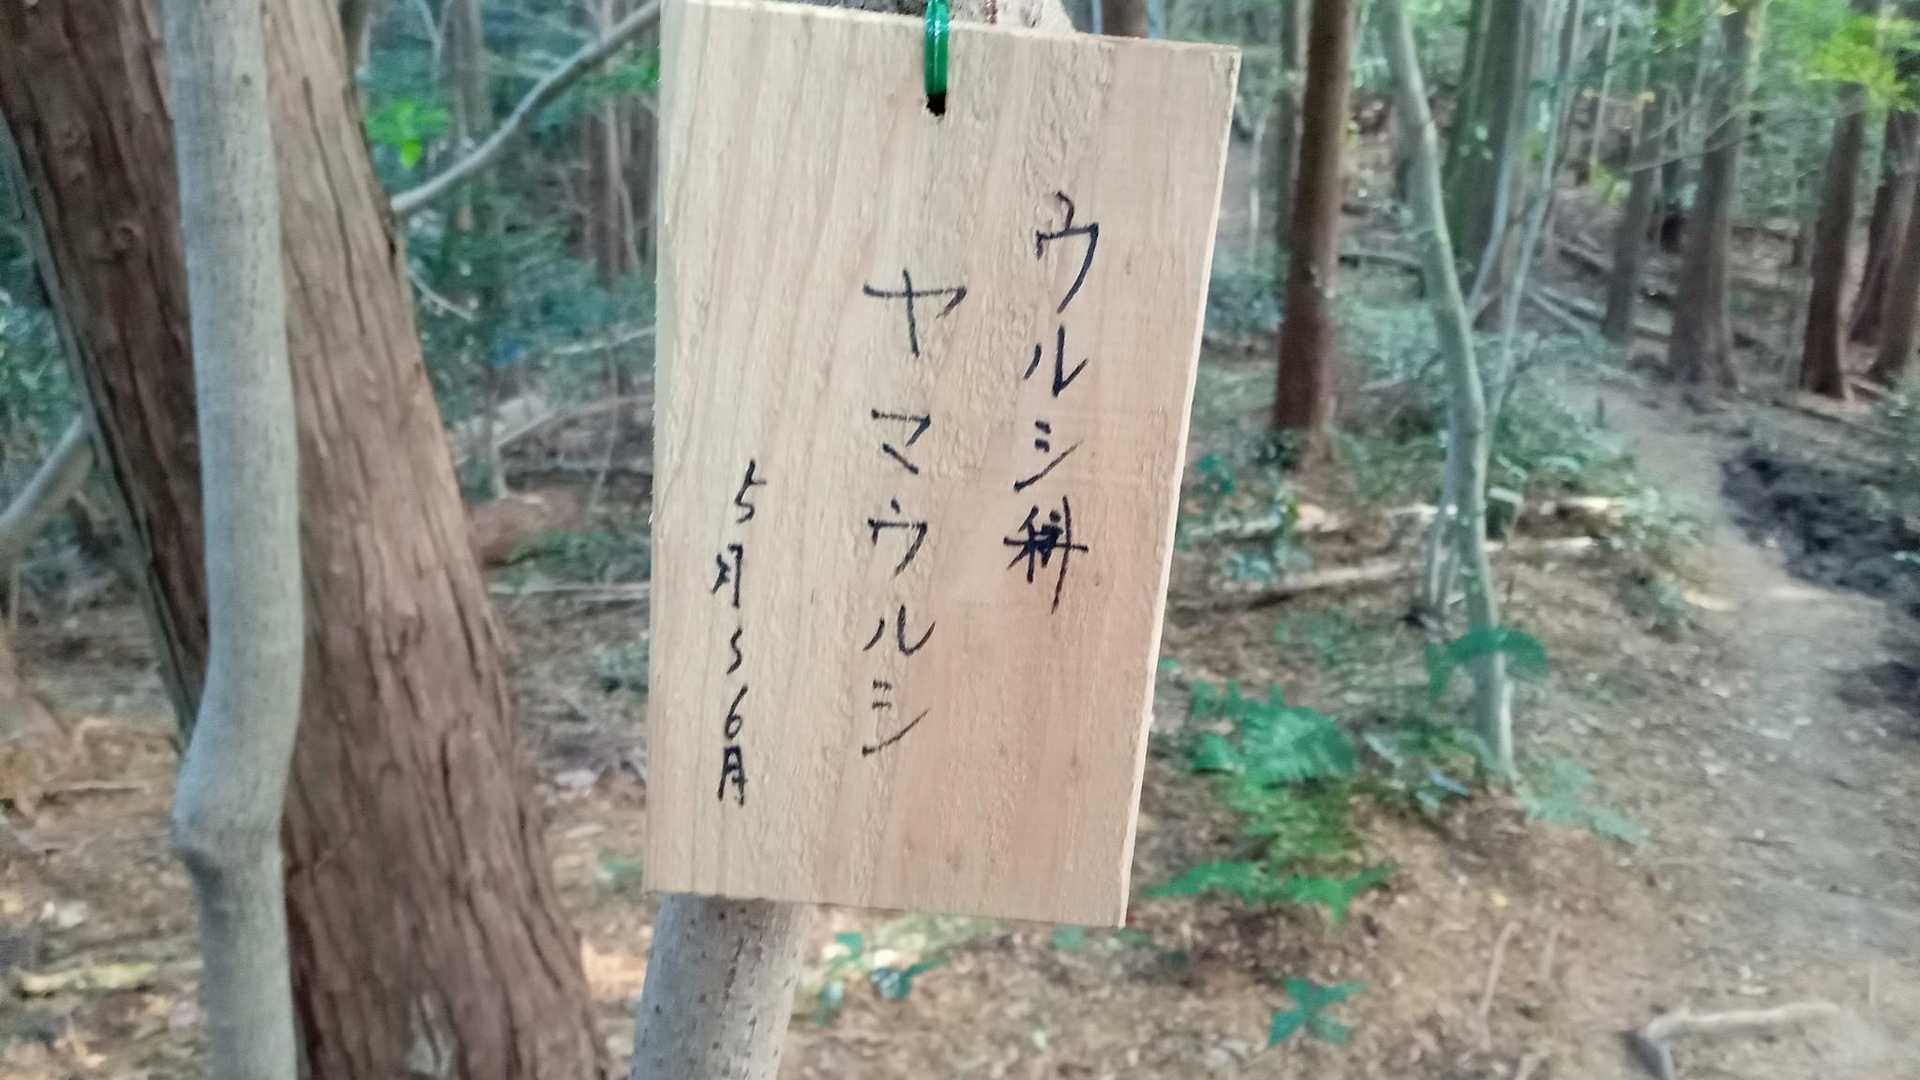 ウルシ科
ヤマウルシ
5月〜6月